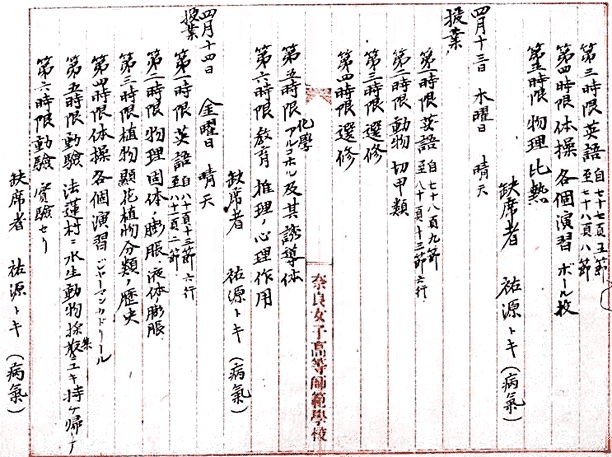 第三時限 英語 自七十七頁五節至七十八頁八節
第四時限 体操 各個演習 ボール投
第五時限 物理 比熱
缺席者 祐源トキ(病氣)
四月十三日 木曜日 晴天
授業
第一時限 英語 自七十八頁九節至八十頁十三節六行
第二時限 動物 切甲類
第三時限 選修
第四時限 選修
第五時限 化學 アルコホル及其誘導体
第六時限 教育 推理ノ心理作用
缺席者 祐源トキ(病氣)
四月十四日 金曜日 晴天
授業
第一時限 英語 自八十頁十三節六行至八十二頁二節
第二時限 物理 固体ノ膨脹 液体膨脹
第三時限 植物 顕花植物分類ノ歴史
第四時限 体操 各個演習 ジャーマンカドリール
第五時限 動驗 法蓮村ニ水生動物採集ニユキ持ケ帰リ
第六時限 動驗 實驗セリ
缺席者 祐源トキ(病氣)
奈良女子高等師範學校